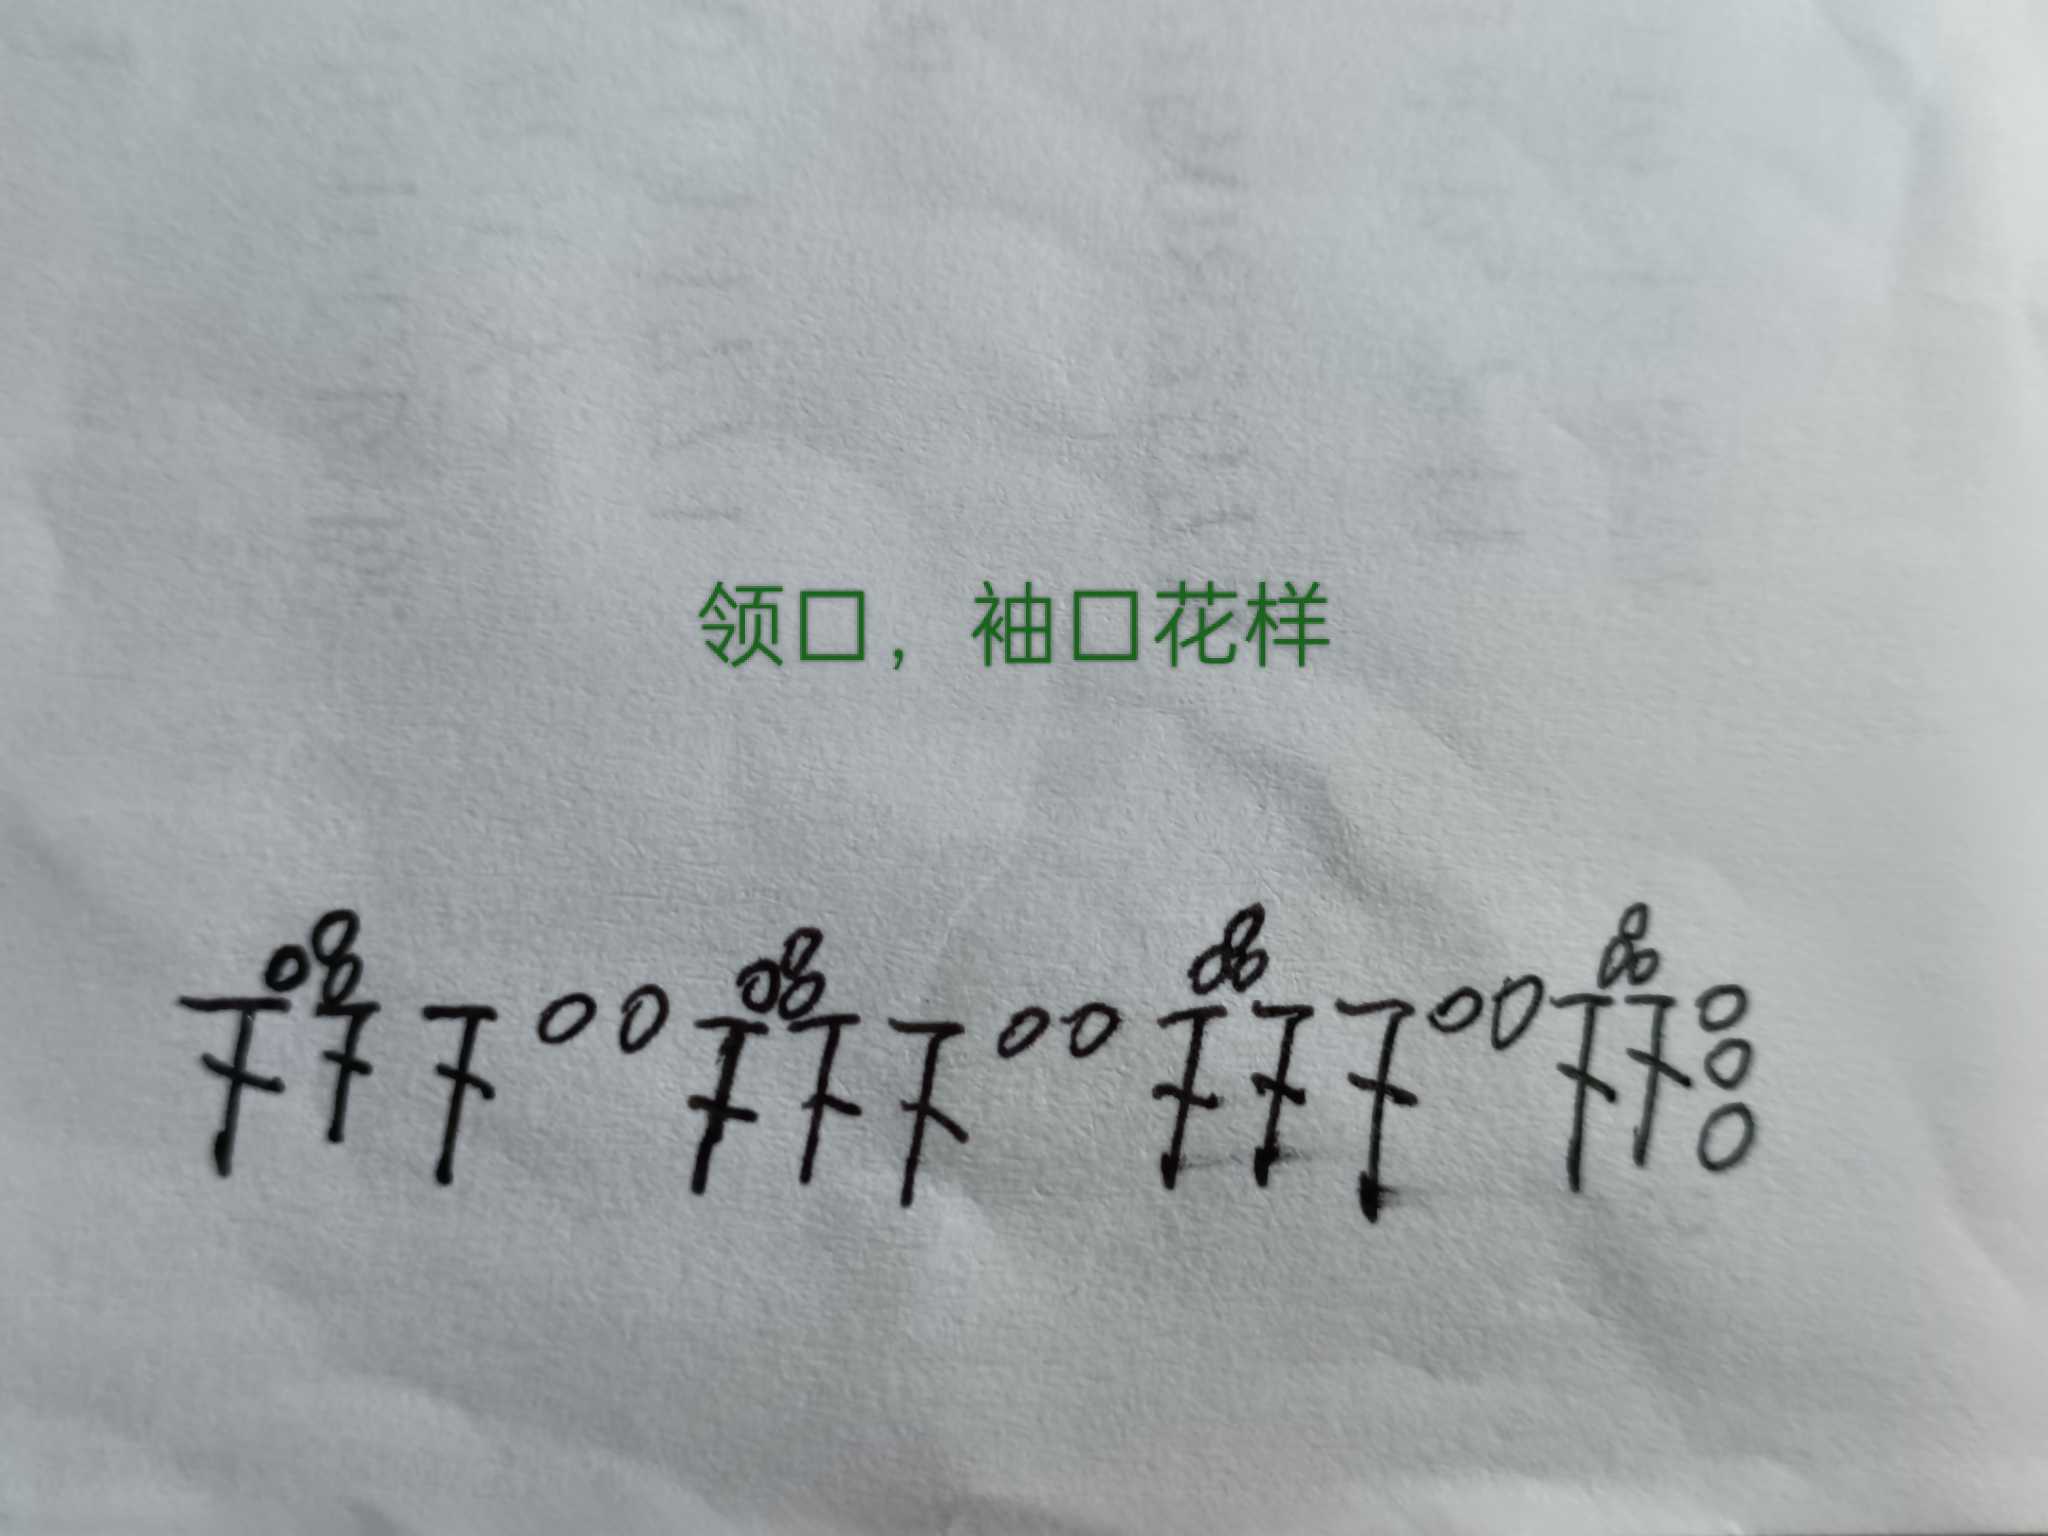 领口，袖口花样